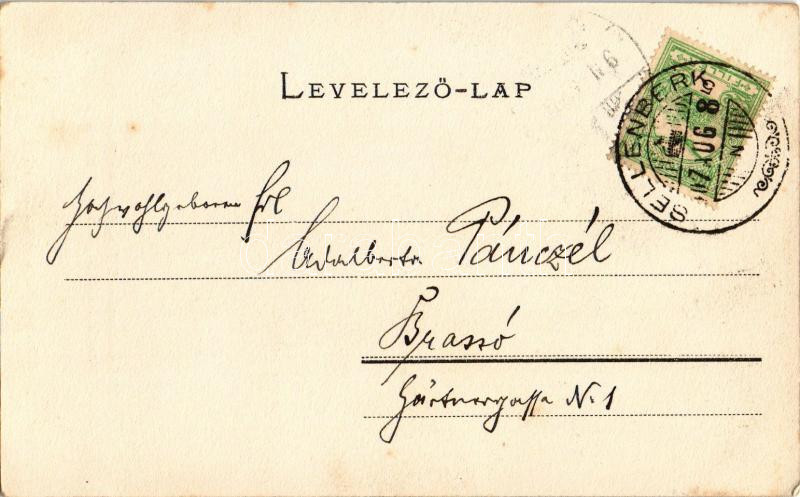 LEVELEZŐ-LAP
FILLÉR
SELLENBERK
Hochwohlgeboren Frl
Adalberta Pánczél
Brassó
Gärtnergasse N. 1